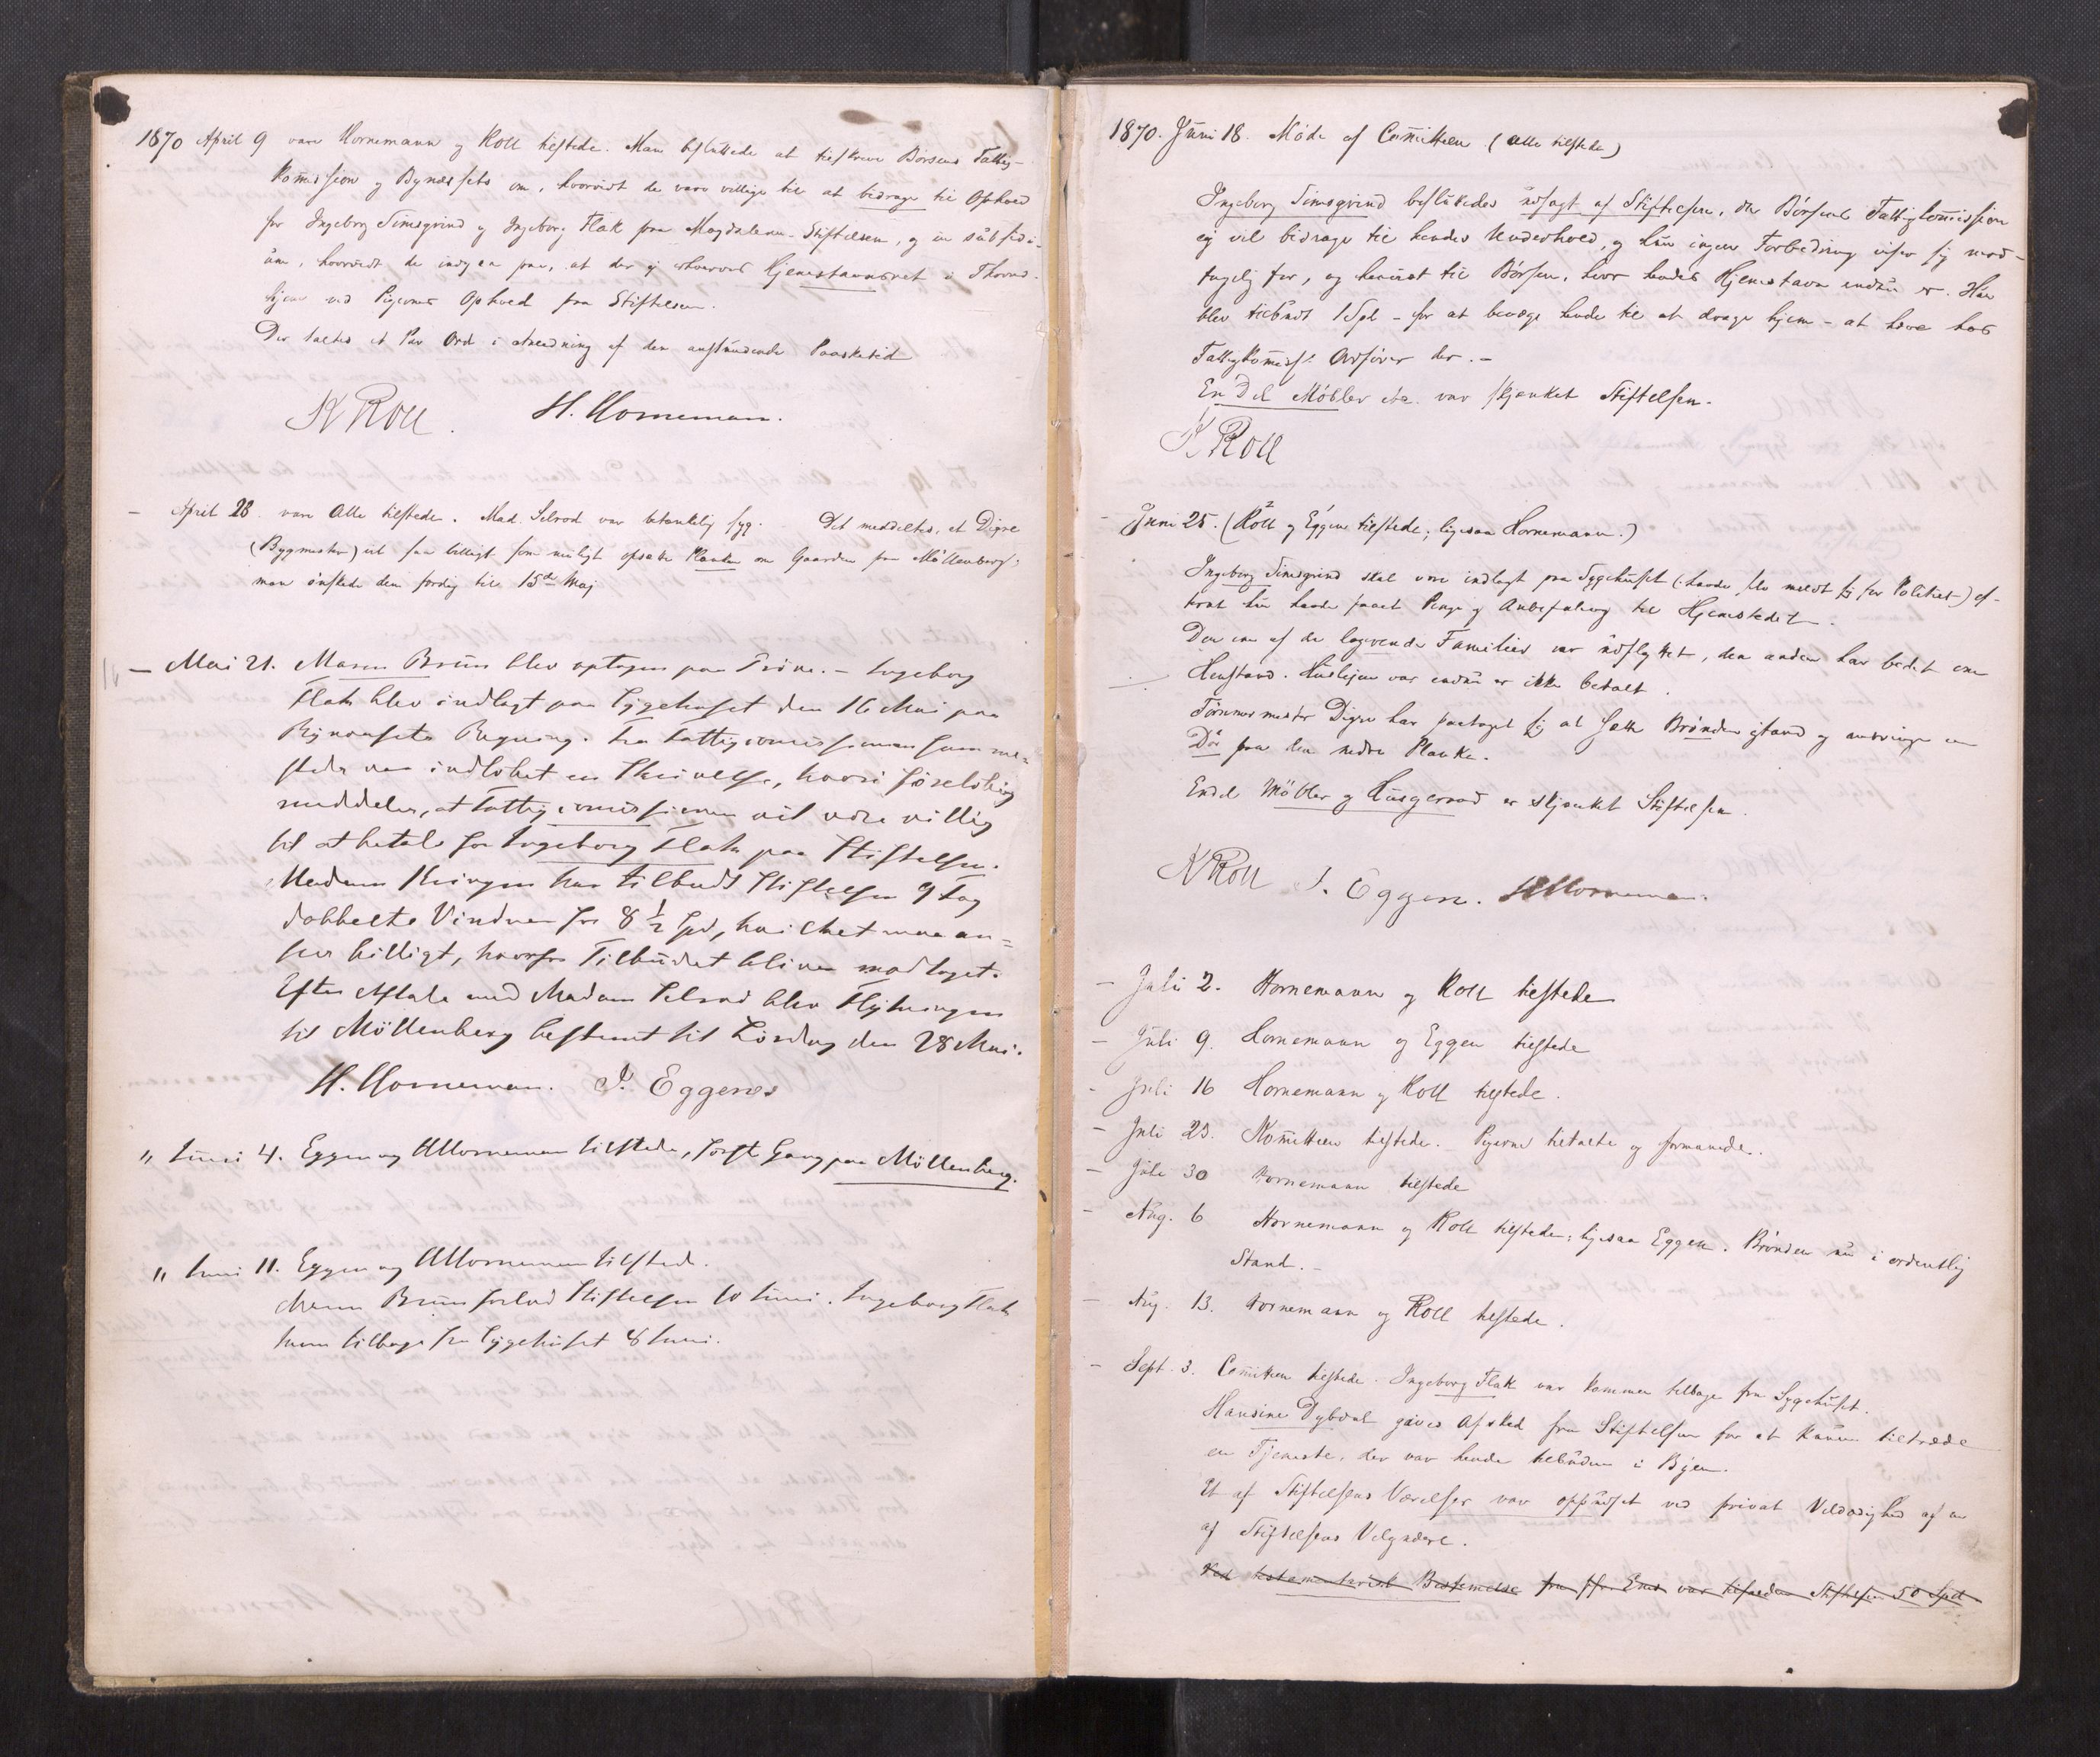 1870 April 9 vare Hornemann og Roll tilstede. Man besluttede at tilskrive Børsens Fattig-
kommission og Bynæssets om, hvorvidt de vare villige til at bidrage til Ophold
for Ingeborg Simsgrind og Ingeborg Flak paa Magdalena-Stiftelsen, og in subsidi-
um, hvorvidt de indgaa paa, at der ej erhverves Hjemstavnsret i Thrond-
hjem ved Pigernes Ophold paa Stiftelsen.
Der taltes et Par Ord i Anledning af den anstundende Paasketid
K Roll. H. Hornemann.
- April 28. vare Alle tilstede. Mad. Selvod var betænkelig syg. Det meddeltes, at Digre
(Bygmester) vil saa billigt som muligt opsætte Planke om Gaarden paa Møllenberg;
man ønskede den færdig til 15de Maj
- Mai 21. Maren Bruun blev optagen paa Prøve. - Ingeborg
Flak blev indlagt paa Sygehuset den 16 Mai paa
Bynæssets Regning. Fra Fattigcommissionen samme-
steds var indløbet en Skrivelse, hvori foreløbig
meddeles, at Fattigcommissionen vil være villig
til at betale for Ingeborg Flak paa Stiftelsen.
Madam har tilbudt Stiftelsen 9 Fag
dobbelte Vinduer for 8 1/2 Spd, hvilket maa an-
sees billigt, hvorfor Tilbudet bliver modtaget.
Efter Aftale med Madam Selvod blev Flytningen
til Möllenberg bestemt til Lørdag den 28 Mai.
H. Hornemann. J. Eggen
" Juni 4. Eggen og Hornemann tilstede, første Gang paa Möllenberg.
" Juni 11. Eggen og Hornemann tilstede.
Maren Bruun forlod Stiftelsen 10 Juni. Ingeborg Flak
kom tilbage fra Sygehuset 8 Juni.
1870. Juni 18. Møde af Comitteen (alle tilstede)
Ingeborg Simsgrind besluttedes udsagt af Stiftelsen, da Børsens Fattigkommission
ej vil bidrage til hendes Underhold, og hun ingen Forbedring viser sig mod-
tagelig for, og henvist til Børsen, hvor hendes Hjemstavn endnu er. Hun
blev tilbudt 1 Spd - for at bevæge hende til at drage hjem - at hæve hos
Fattigkommiss. Ordfører der. -
En Del Møbler etc. var skjænket Stiftelsen.
K Roll
- Juni 25. (Roll og Eggen tilstede; ligesaa Hornemann.)
Ingeborg Simsgrind skal være indlagt paa Sygehuset (havde selv meldt sig for Politiet) ef-
terat hun havde faaet Penge og Anbefaling til Hjemstedet.
Den ene af de logerende Familier var udflyttet, den anden har bedet om
Henstand. Huslejen var endnu ikke betalt.
Tømmermester Digre har paataget sig at sætte Brønden istand og anbringe en
Dør paa den nedre Planke.
Endel Møbler og Husgeraad er skjænket Stiftelsen.
K Roll J. Eggen. H Hornemann.
- Juli 2. Hornemann og Roll tilstede
- Juli 9. Hornemann og Eggen tilstede
- Juli 16 Hornemann og Roll tilstede.
- Juli 23. Komitteen tilstede. Pigerne tiltalte og formanede.
- Juli 30 Hornemann tilstede
- Aug. 6 Hornemann og Roll tilstede; ligesaa Eggen. Brønden nu i ordentlig
Stand. -
- Aug. 13. Hornemann og Roll tilstede.
- Sept. 3. Comitteen tilstede. Ingeborg Flak var kommen tilbage fra Sygehuset.
Hansine Dybdal gaves Afsked fra Stiftelsen for at kunne tiltræde
en Tjeneste, der var hende tilbuden i Byen.
Et af Stiftelsens Værelser var oppudset ved privat Veldædighed af en
af Stiftelsens Velyndere.
Ved testamentarisk Bestemmelse fra var tilfalden Stiftelsen 50 Spd